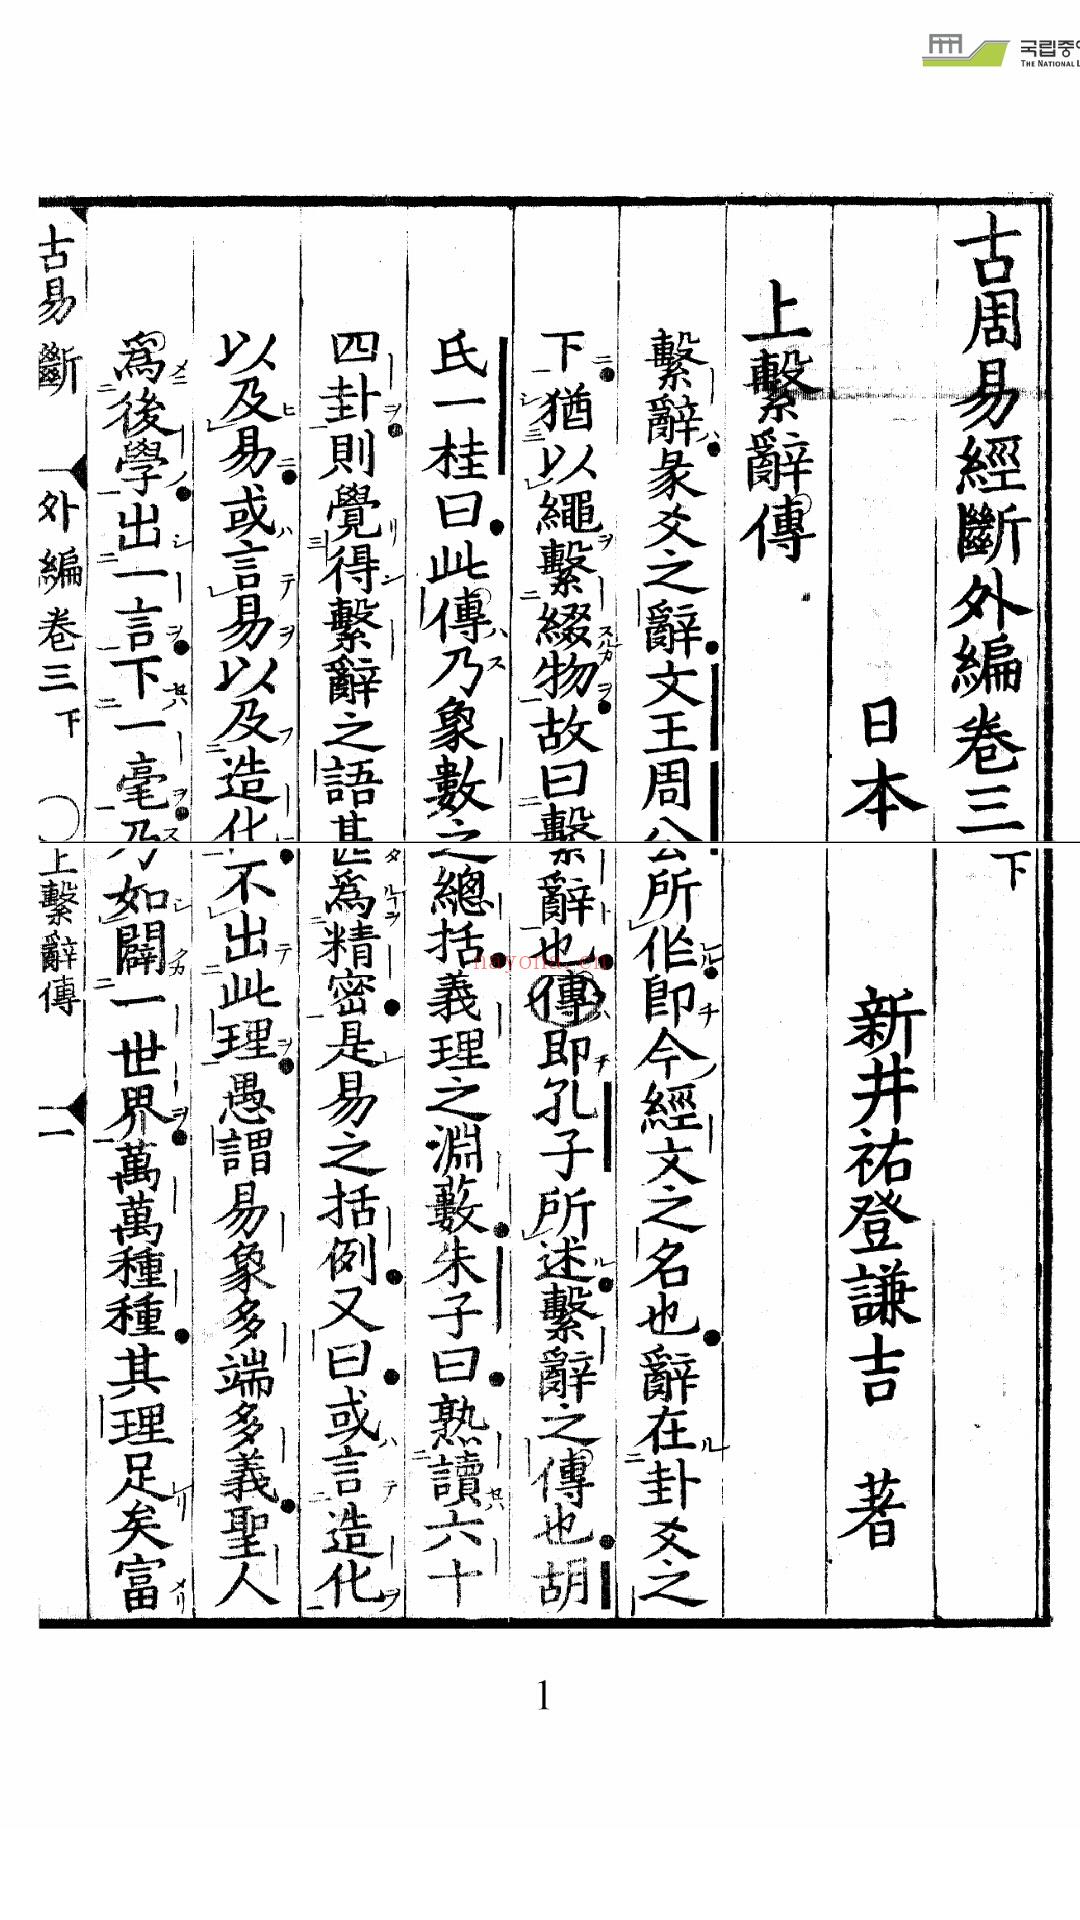 국립중
THE NATIONAL L
古周易經斷外編卷三下
日本　新井祐登謙吉　著
上繫辭傳
繫辭彖爻之辭文王周公所作卽今經文之名也辭在卦爻之
下猶以繩繫綴物故曰繫辭也傳即孔子所述繫辭之傳也胡
氏一桂曰此傳乃象數之總括義理之淵藪朱子曰熟讀六十
四卦則覺得繫辭之語甚爲精密是易之括例又曰或言造化
以及易或言易以及造化不出此理愚謂易象多端多義聖人
爲後學出一言下一毫乃如闢一世界萬萬種種其理足矣富
古易斷　外編卷三下　上繫辭傳　一
nayona.cn
1